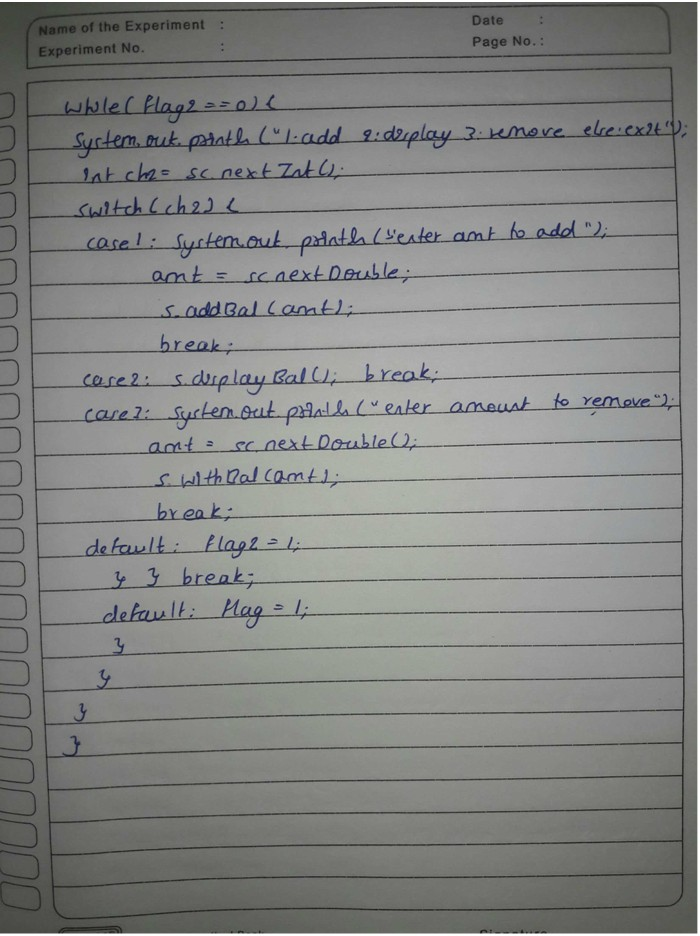 Name of the Experiment :
Date :
Experiment No. :
Page No. :
while(flag2==0){
System.out.println("1.add 2:display 3:remove else:exit");
int ch2= sc.nextInt();
switch(ch2){
case1: System.out.println("enter amt to add");
amt = sc.nextDouble;
s.addBal(amt);
break;
case2: s.displayBal(); break;
case3: System.out.println("enter amount to remove");
amt = sc.nextDouble();
s.withBal(amt);
break;
default: flag2=1;
} } break;
default: flag=1;
}
}
}
}